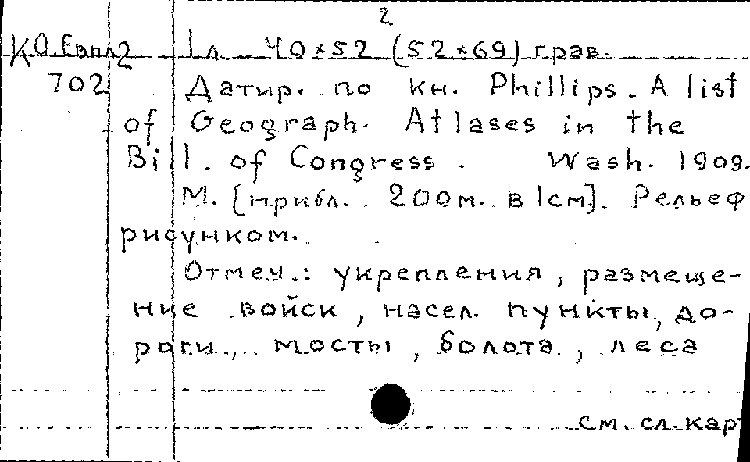 2
К.О.Евп 2 1л. 40×52 (52×69) грав.
702 Датир. по кн. Phillips. A list
of Geograph. Atlases in the
Bill. of Congress. Wash. 1909.
М. [прибл. 200м. в 1см]. Рельеф
рисунком.
Отмеч.: укрепления, размеще-
ние войск, насел. пункты, до-
роги, мосты, болота, леса
см. сл. кар